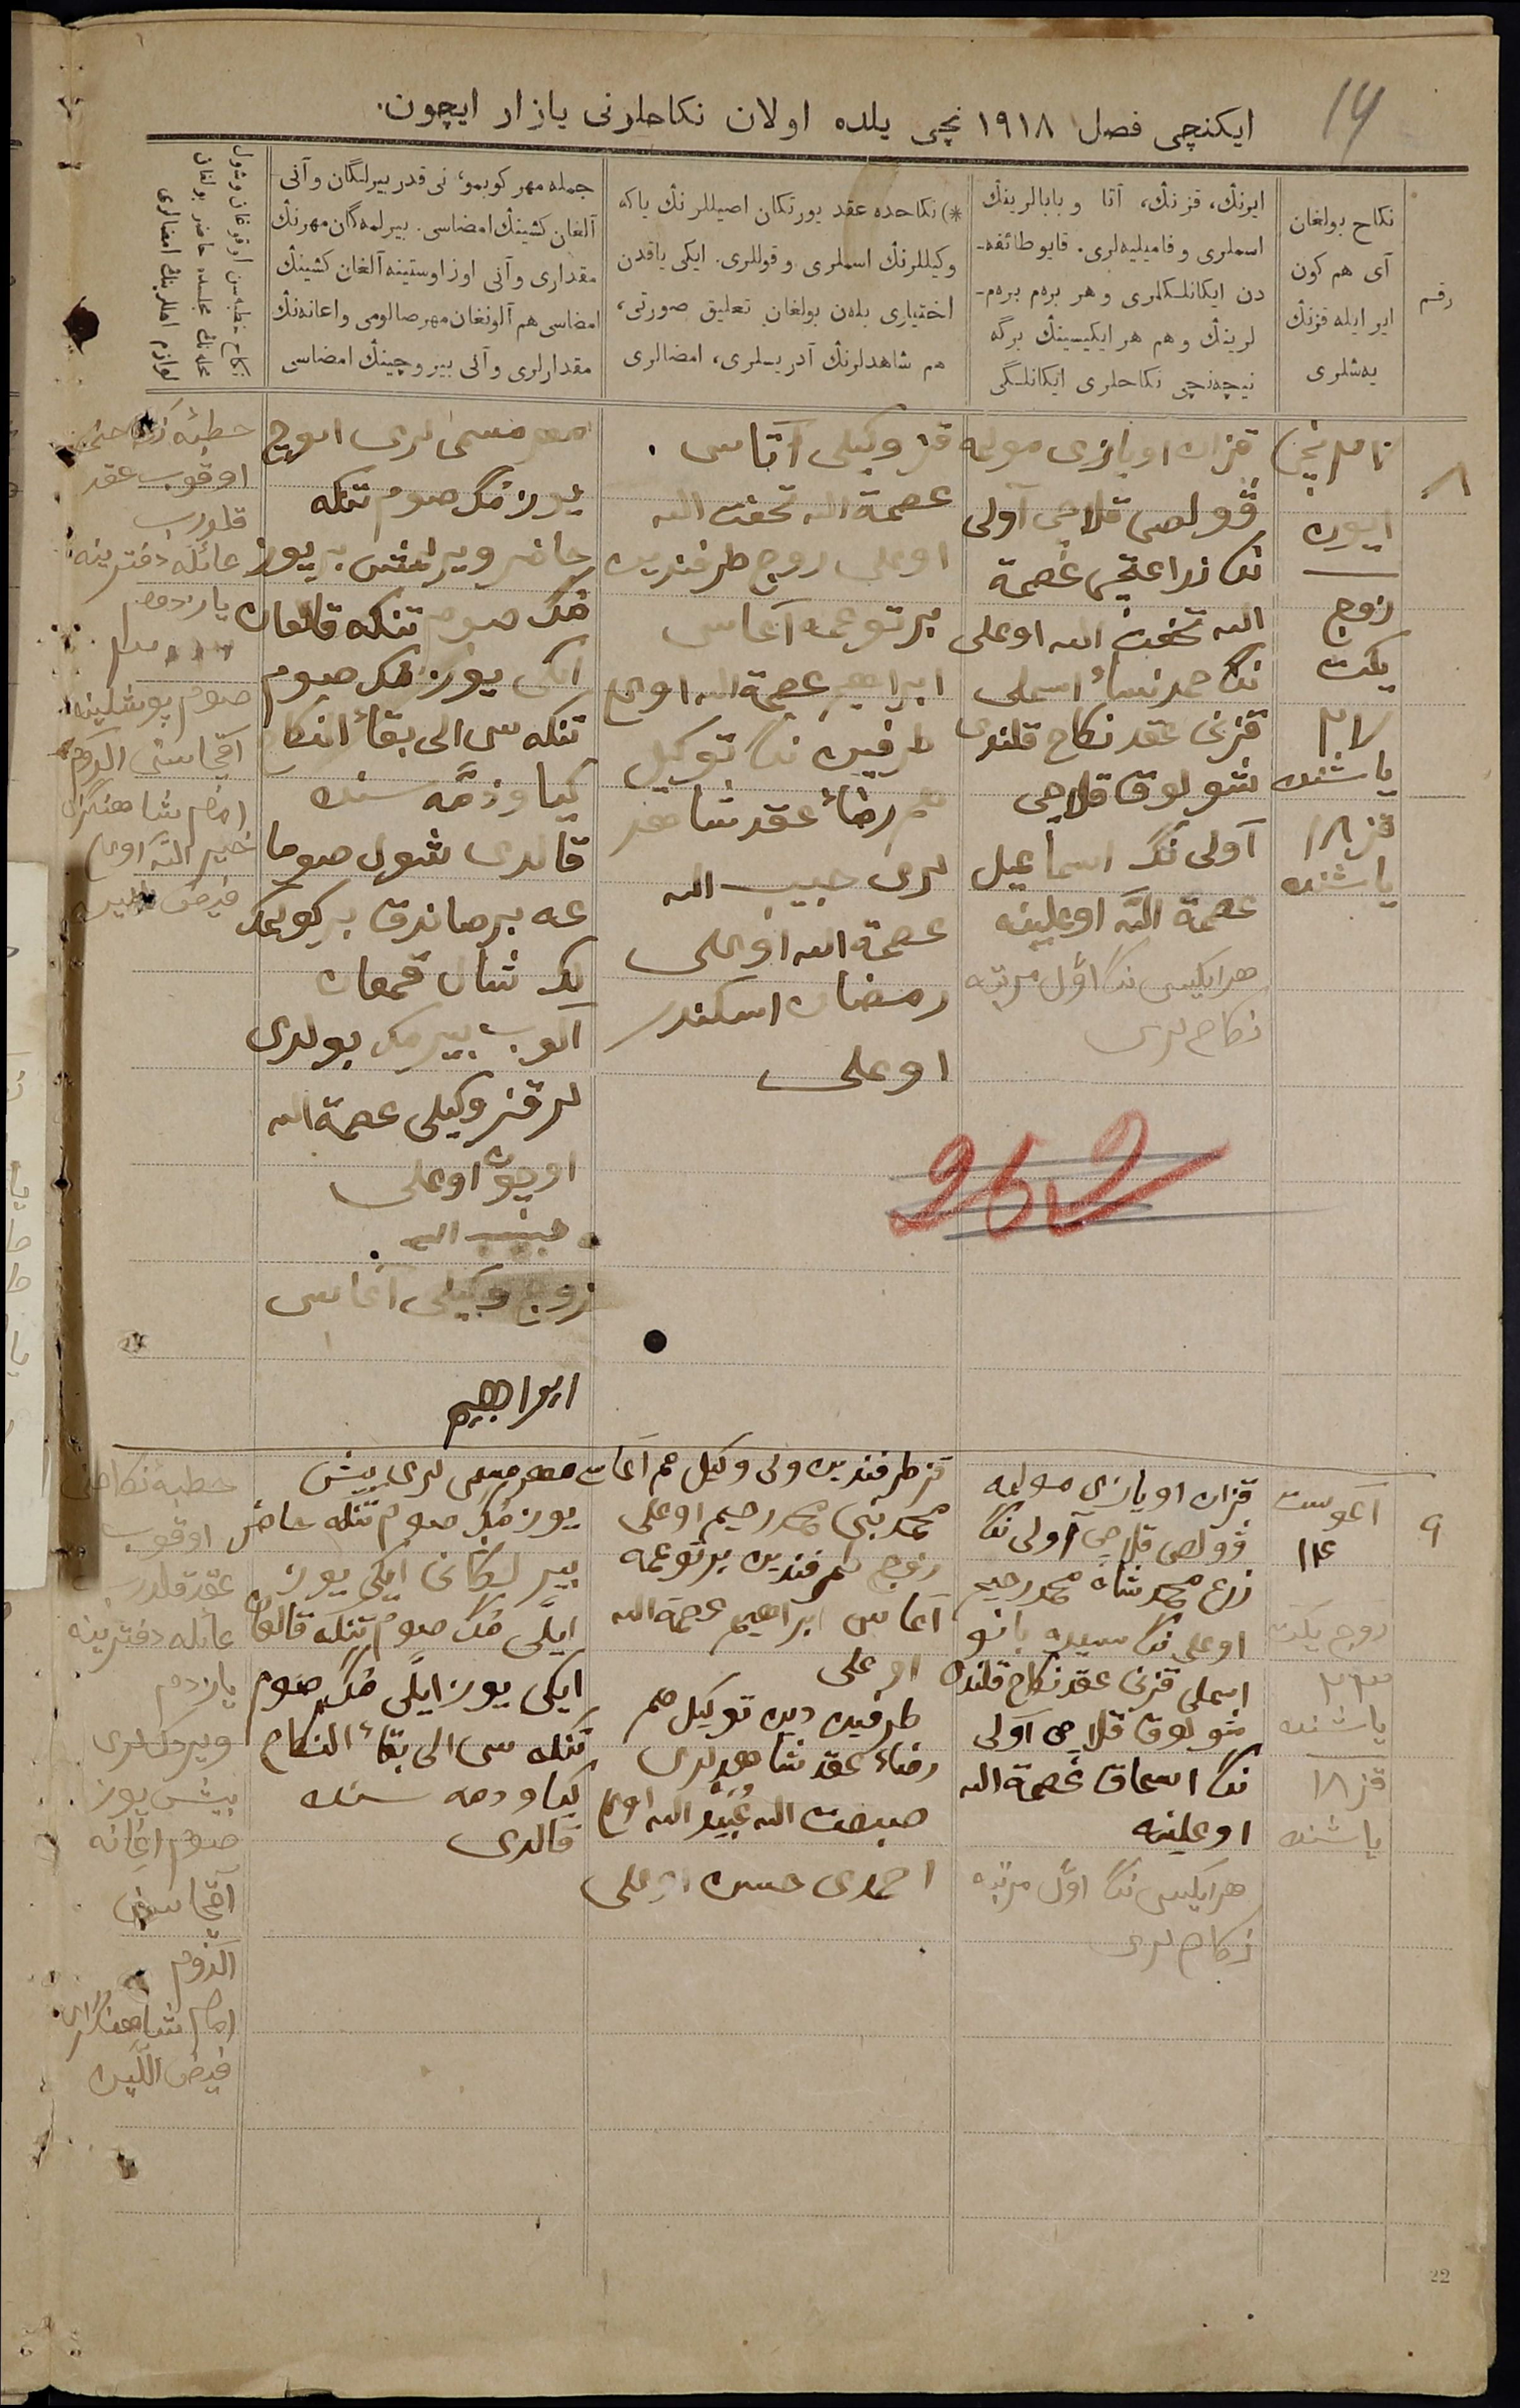 14
ایکنچی فصل ۱۹۱۸ نچی یلده اولان نکاحلرنی یازار ایچون.
رقم
نکاح بولغان
آی هم کون
ایر ایله قزنڭ
یەشلری
ایرنڭ، قزنڭ، آتا و بابالرینڭ
اسملری و فامیلیەلری. قایو طائفە‌-
دن ایکانلکلری و هر برەم برەم-
لرینڭ و هم هر ایکیسینڭ برگه
نیچەنچی نکاحلری ایکانلگی
*) نکاحده عقد یورتکان اصیللرنڭ یاکه
وکیللرنڭ اسملری و قوللری. ایکی یاقدن
اختیاری بلەن بولغان تعلیق صورتی،
هم شاهدلرنڭ آدریسلری، امضالری
جمله مهر کوبمو، نی قدر بیرلگان و آنی
آلغان کشینڭ امضاسی. بیرلمەگان مهرنڭ
مقداری و آنی اوز اوستینه آلغان کشینڭ
امضاسی هم آلونغان مهر صالومی و اعانەنڭ
مقدارلری و آلی بیروچینڭ امضاسی
نکاح خطبەسن اوقوغان و شول
محلەنڭ مجلسده حاضر بولغان
لوازم اهللرینڭ امضالری
۸
ایون
زوج
یکت
۲۷
یاشنده
قز ۱۸
یاشنده
قزان اویازی مولمه
ڤولصی قلاچی آولی
نڭ زراعتچی عصمة
الله تحفت الله اوغلی
نڭ حمدنساء اسملی
قزنی عقد نکاح قلندی
شولوق قلاچی
آولی نڭ اسماعیل
عصمة الله اوغلینه
هر ایکیسی نڭ اوّل مرتبه
نکاح لری
قز وکیلی آتاسی
عصمة الله تحفت الله
اوغلی زوج طرفندین
بر توغمه آغاسی
ابراهیم عصمة الله اوغلی
طرفین نڭ توکیل
هم رضاء عقد شاهد
لری حبیب الله
عصمة الله اوغلی
رمضان اسکندر
اوغلی
مهر مسمی لری اوچ
یوز مڭ صوم تنکه
حاضر ویرلمش بر یوز
مڭ صوم تنکه قالغان
ایکی یوز مڭ صوم
تنکه سی الی بقاء النکاح
کیاو ذمّه سنده
قالدی شول صوما
غه بر صاندق بر کولمک
آلوب بیرمک بولدی
لر قز وکیلی عصمة الله
اوچون اوغلی
حبیب الله
زوج وکیلی آغاسی
ابراهیم
اوقوب عقد
قلدرب
عائله دفترینه
یازدم
امام شاهنگرای
خیر الله اوغلی
262
۹
آغوست
۱۴
زوج یکت
۲۳
یاشنده
قز ۱۸
یاشنده
قزان اویازی مولمه
ڤولصی قلاچی آولی نڭ
زرع محمد شاه محمد رحیم
اوغلی نڭ سیده بانو
اسملی قزنی عقد نکاح قلنده
شولوق قلاچی آولی
نڭ اسحاق عصمة الله
اوغلینه
هر ایکیسی نڭ اوّل مرتبه
نکاح لری
قز طرفندین ولی وکیل هم آغاسی
محمد نبی محمد رحیم اوغلی
زوج طرفندین بر توغمه
آغاسی ابراهیم عصمة الله
اوغلی
طرفین دین توکیل هم
رضاء عقد شاهدلری
صبغت الله عُبَید الله اوغلی
احمدی حسن اوغلی
مهر مسمی لری بیش
یوز مڭ صوم تنکه حاضر
بیرلگانی ایکی یوز
ایللی مڭ صوم تنکه قالغان
ایکی یوز ایللی مڭ صوم
تنکه سی الی بقاء النکاح
کیاو ذمه سنده
قالدی
خطبۀ نکاحنی
اوقوب
عقد قلدرب
عائله دفترینه
یازدم
ویردکلری
بیش یوز
صوم اعانه
آقچاسنی
آلدوم
امام شاهنگرای
22